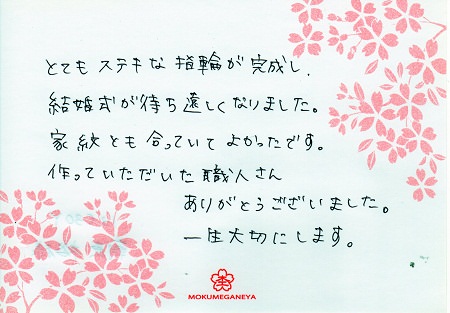 とてもステキな指輪が完成し、
結婚式が待ち遠しくなりました。
家紋とも合っていてよかったです。
作っていただいた職人さん
ありがとうございました。
一生大切にします。
MOKUMEGANEYA